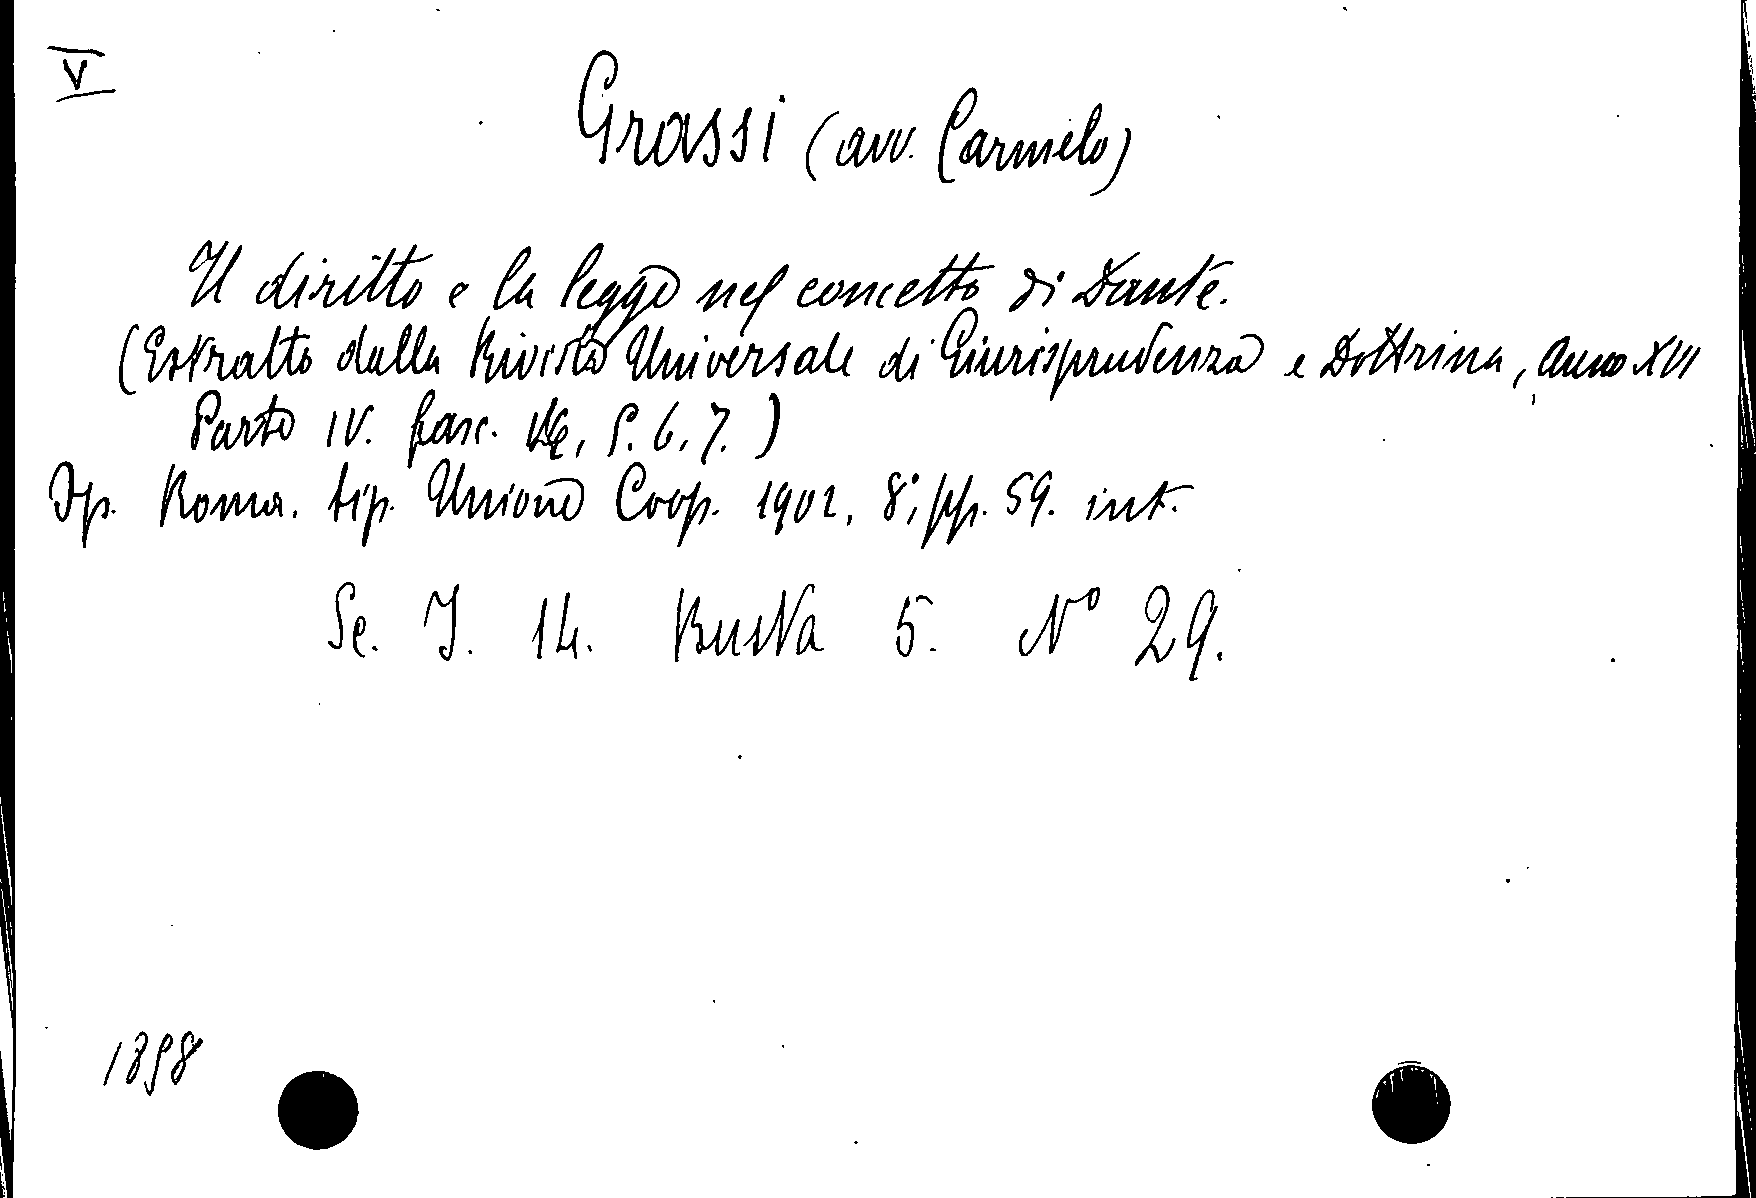 V
Grassi (avv. Carmelo)
Il diritto e la legge nel concetto di Dante.
(Estratto dalla Rivista Universale di Giurisprudenza e Dottrina, Anno XVI
Parte IV. fasc. 5. 6. 7.)
Op. Roma. tip. Unione Coop. 1902, 8°, pp. 59. int.
Se. I. 14. Busta 5. N° 29.
1898